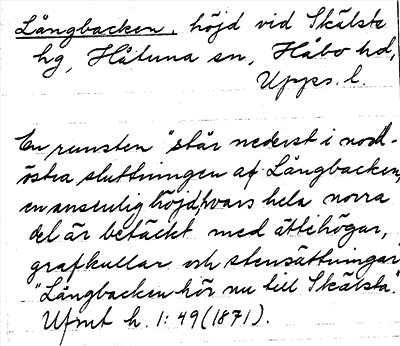 Långbacken, höjd vid Skälsta
hg, Håtuna sn, Håbo hd,
Upps. l.
En runsten "står nederst i nord-
östra sluttningen af Långbacken,
en ansenlig höjd, hvars hela norra
del är betäckt med ättehögar,
grafkullar och stensättningar
"Långbacken hör nu till Skälsta".
Ufmt h. 1: 49 (1871).